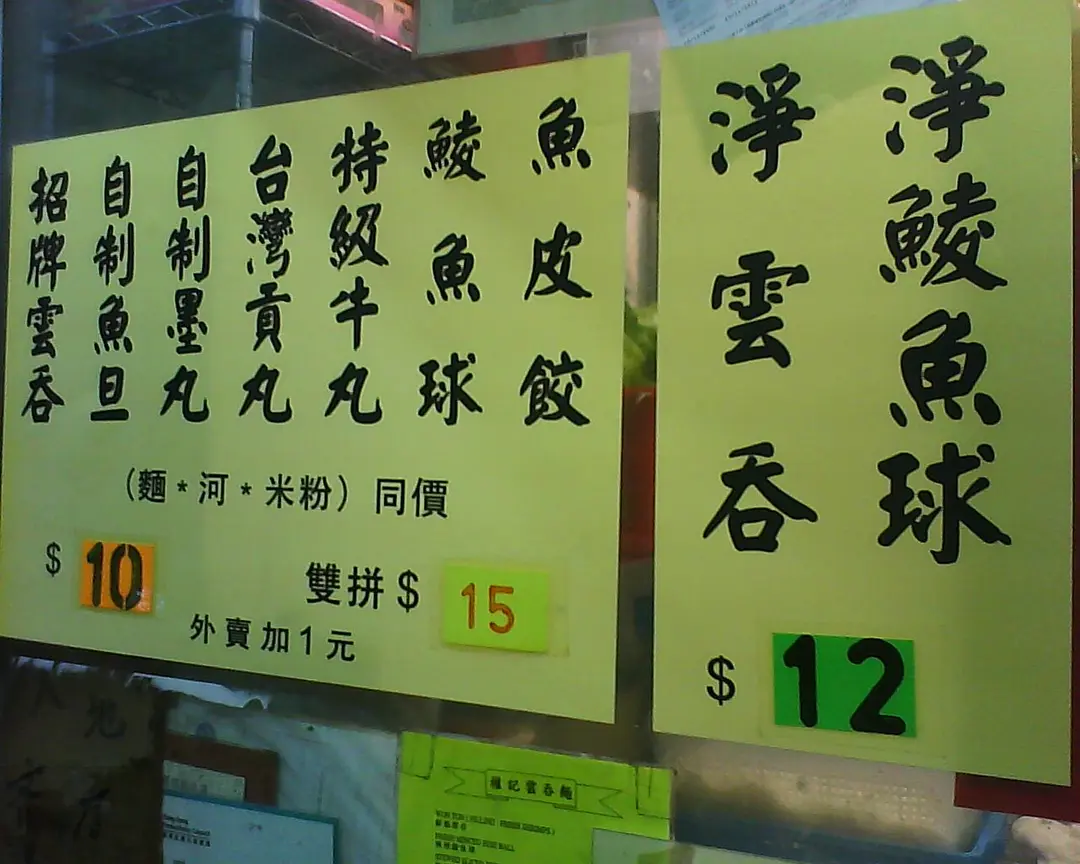 淨鯪魚球
淨雲吞
$12
魚皮餃
鯪魚球
特級牛丸
台灣貢丸
自制墨丸
自制魚旦
招牌雲吞
（麵*河*米粉）同價
$10
雙拼$15
外賣加1元
記雲吞麵
WON TON ( FILLING : FRESH SHRIMPS )